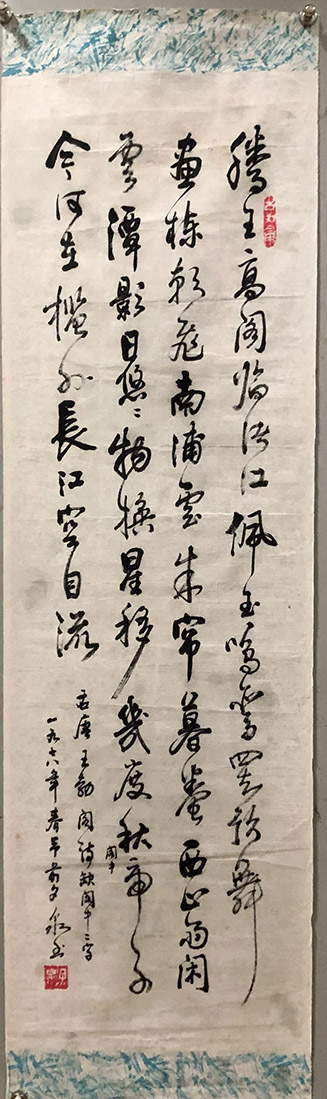 滕王高阁临渚江佩玉鸣鸾罢歌舞
畫棟朝飛南浦雲朱帘暮卷西山雨闲
雲潭影日悠〻物換星移幾度秋帝子
阁中
今何在槛外長江空自流
右唐王勃阁诗缺阁中二字
年春节前夕泉书